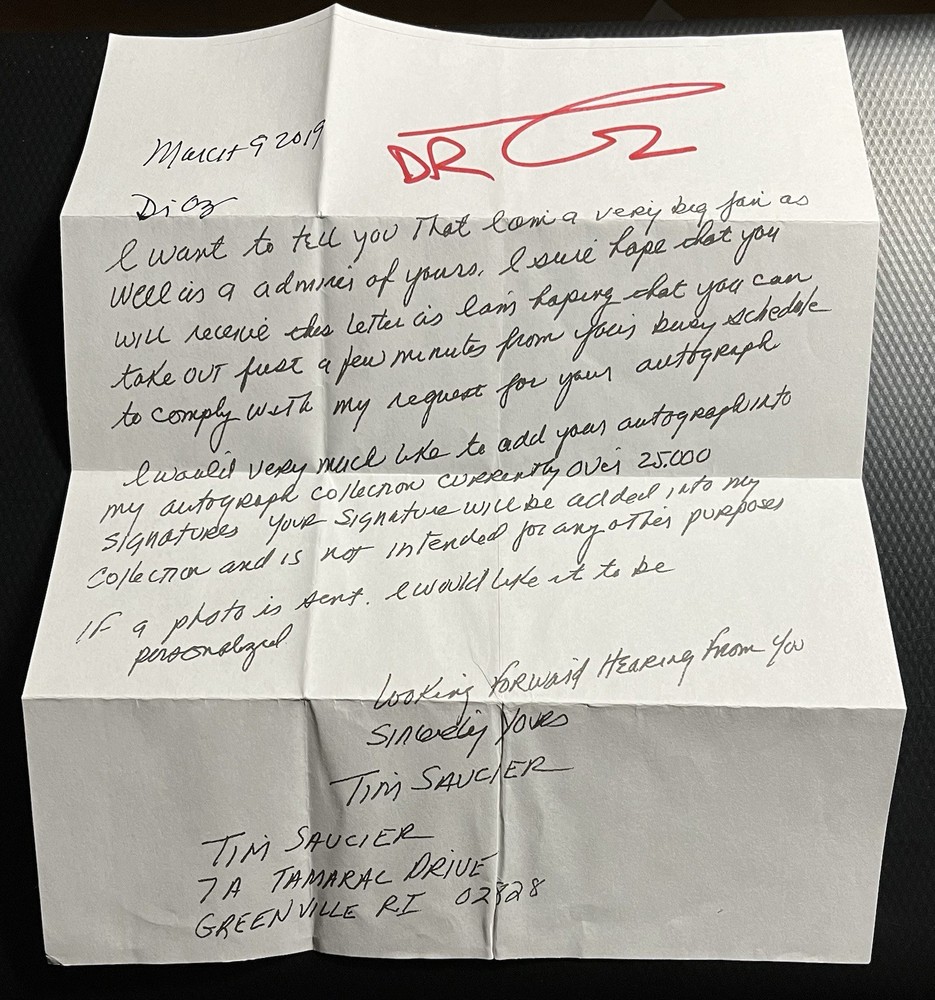 March 9 2019
DR Oz
Dr Oz
I want to tell you That I am a very big fan as
well as a admirer of yours. I sure hope that you
will receive this letter as I am hoping that you can
take OUT just a few minutes from your busy schedule
to comply with my request for your autograph
I would very much like to add your autograph into
my autograph collection currently over 25.000
signatures Your signature will be added into my
collection and is not intended for any other purposes
IF a photo is sent. I would like it to be
personalized
Looking Forward Hearing From You
Sincerely Yours
TIM SAUCIER
TIM SAUCIER
7A TAMARAC DRIVE
GREENVILLE RI 02828